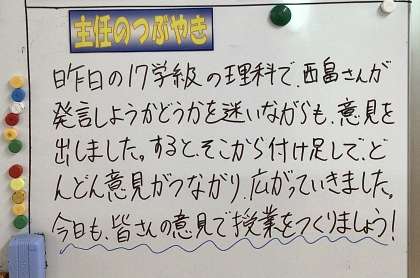 主任のつぶやき
昨日の17学級の理科で、西畠さんが
発言しようかどうかを迷いながらも、意見を
出しました。すると、そこから付け足しで、ど
んどん意見がつながり、広がっていきました。
今日も、皆さんの意見で授業をつくりましょう!